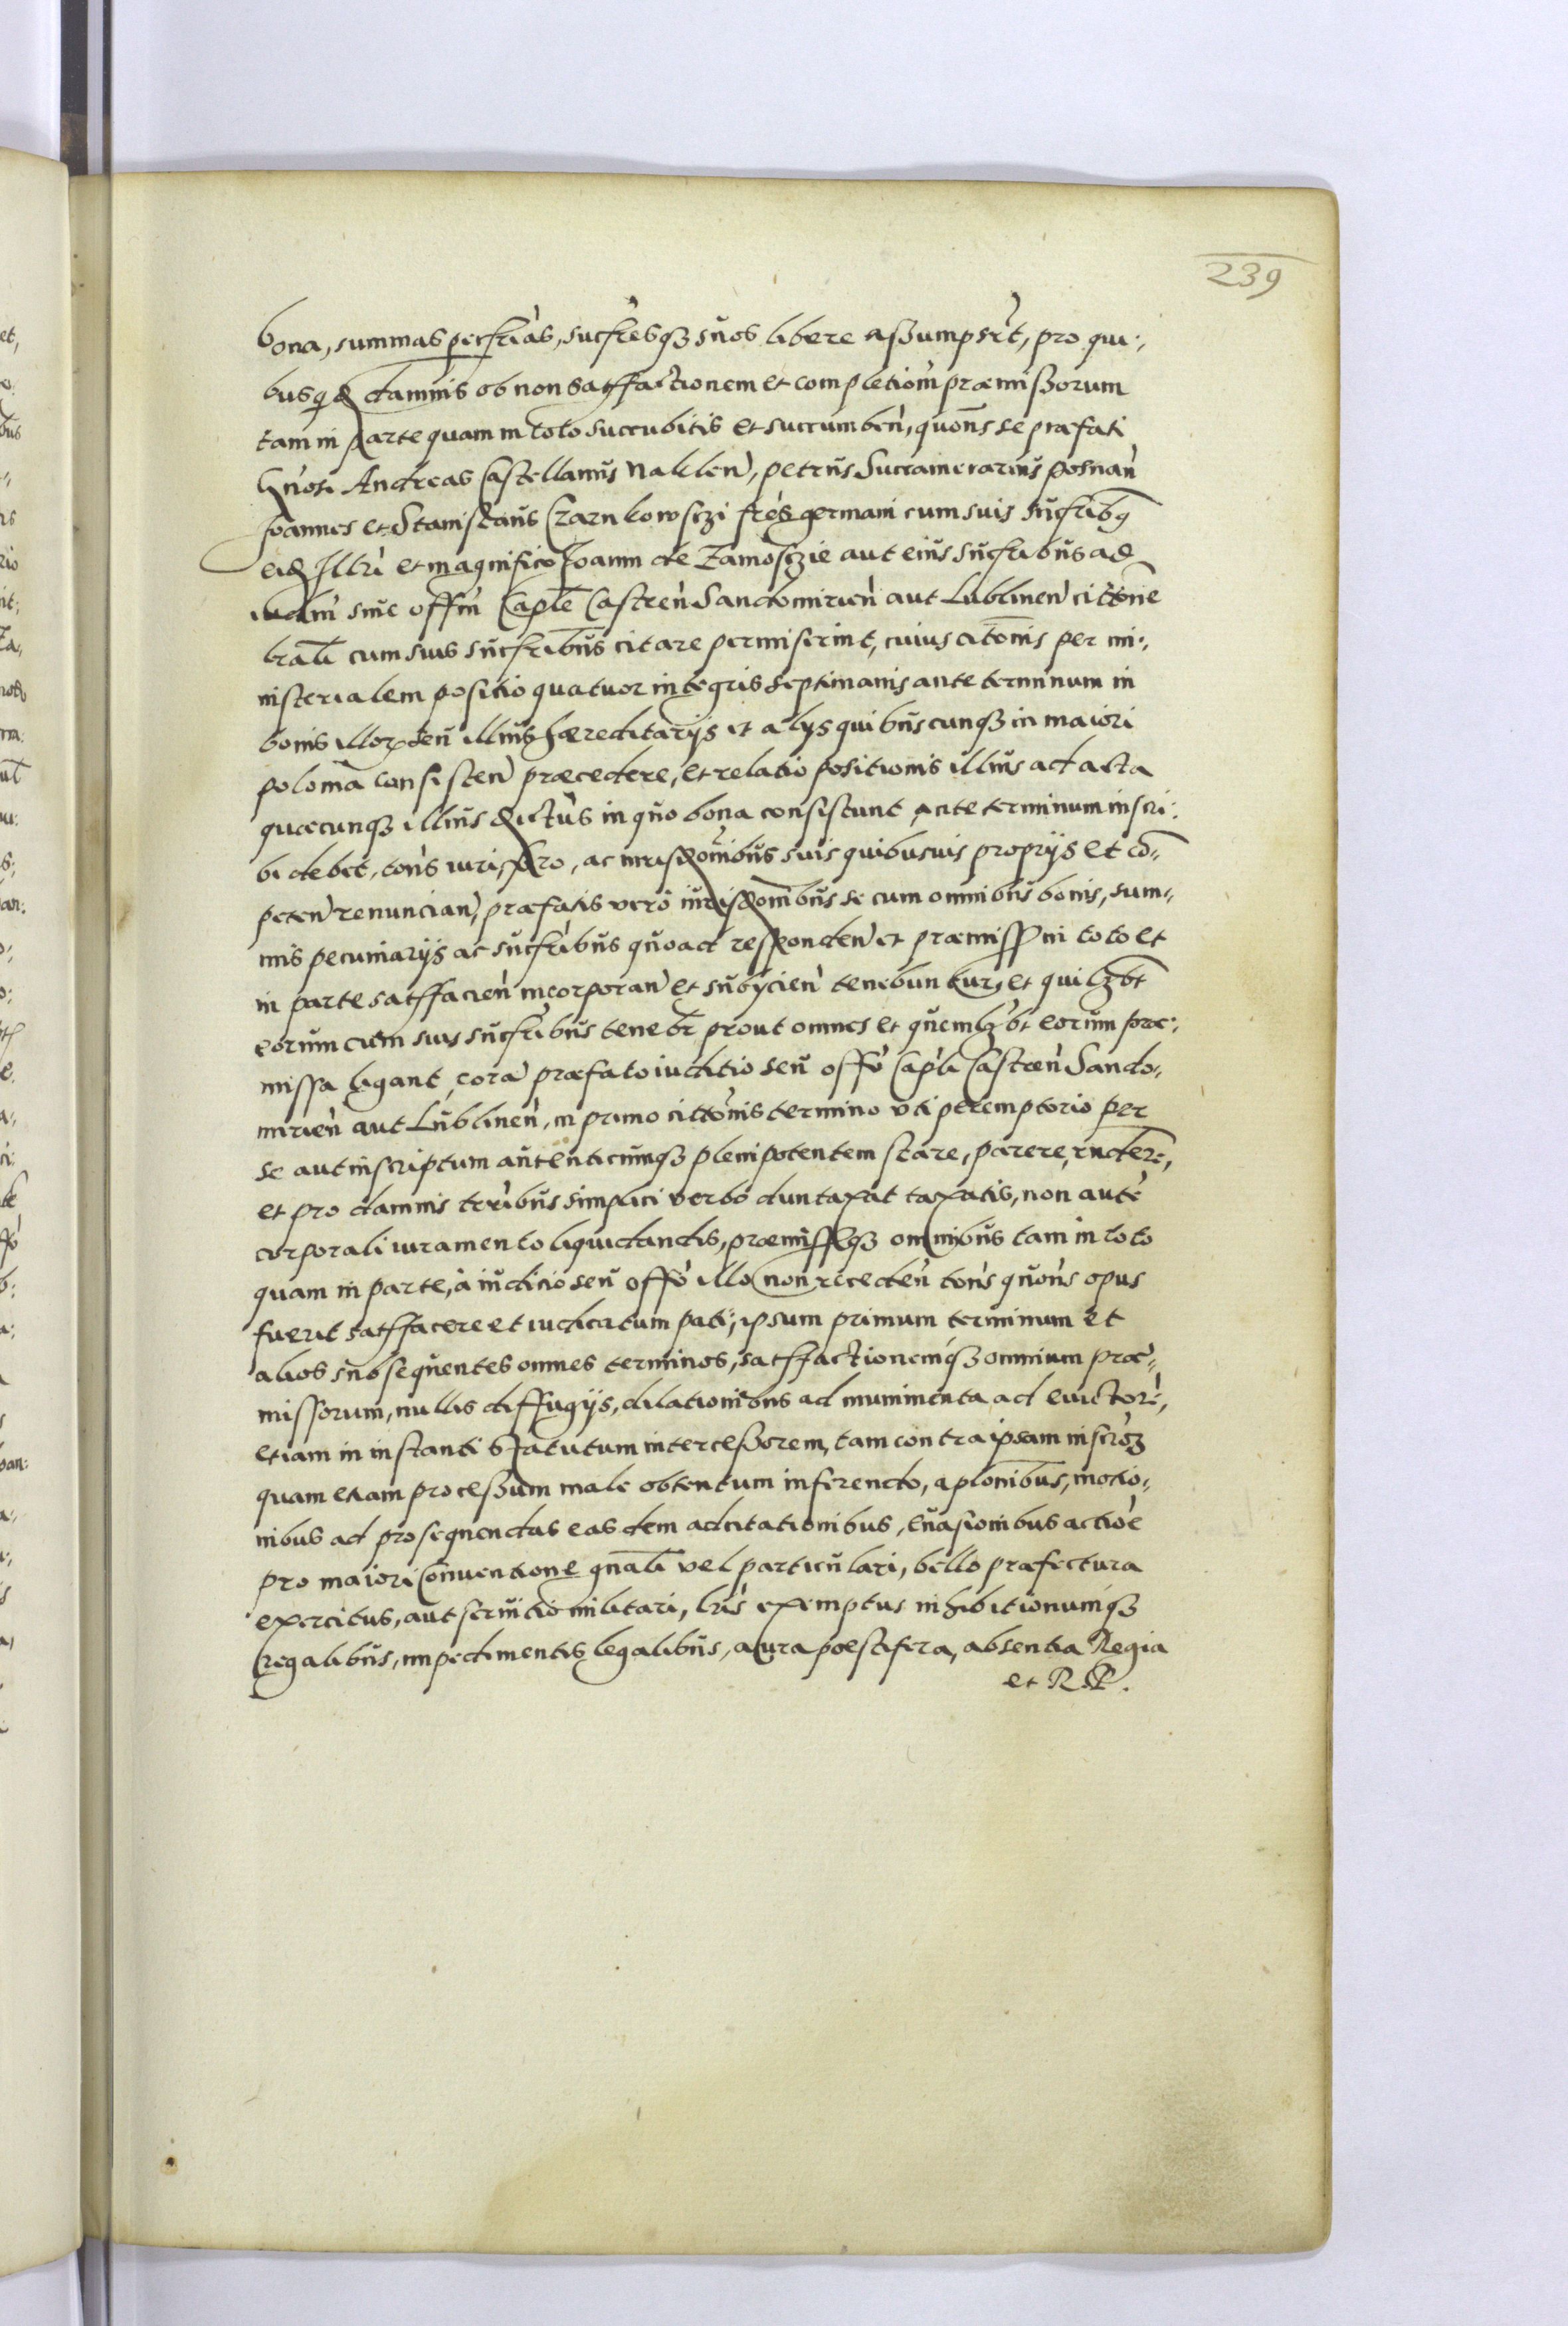 239
bona, summas pecūrias, sucr̃esqз suos libere assumpser̃t, pro qui:,
busq₃ damnis ob non satisfactionem et completiom̃ præmissorum
tam in parte quam in toto succubitis et succumben̄, quon̄s se præfati
Gn̄osi Andreas Castellanus Naklen̄, Petrus Succamerarius Posnan̄
Joannes et Stanislaus Czarnkowsczi fr̃es germani cum suis sucr̃ibq₃
eid Illr̃i et magnifico Joanni de Zamosczie aut eius sucr̃ibus ad
iudm̄ siue offm̄ Caple Castren̄ Sandomirien̄ aut Lublinen̄ citt̄one
lr̃ali cum suis sucr̃ibus citare permiserint, cuius cit̄onis per mi:,
nisterialem positio quatuor integris septimanis ante terminum in
bonis illorꝝ seu illius hæreditarijs et alijs quibuscunqз in maiori
Polonia consisten̄ præcedere, et relatio positionis illius ad acta
quæcunqз illius dictus in quo bona consistunt ante terminum inscri:
bi debet, tons iuri, foro, ac iurisd̄onibus suis quibusuis proprijs et cō=
peten̄ renuncian̄, præfatis vero iurisd̄onibus se cum omnibus bonis, sum=,
mis pecuniarijs ac sucr̃ibus quoad responden̄ et præmiss in toto et
in parte satisfacien̄ incorporan̄ et subijcien̄ tenebuntur, et quilзbt
eorum cum suis sucr̃ibus teneb̄r prout omnes et quemlзbt eorum præ:,
missa ligant, corā præfato iuditio seu offo Capli Castren̄ Sando=,
mirien̄ aut Lublinen̄, in primo citt̄onis termino vti peremptorio per
se aut inscriptum autenticumqз plenipotentem stare, parere, rndere,
et pro damnis terr̃ibus simplici verbo duntaxat taxatis, non autē
corporali iuramento liquidandis, præmissisqз omnibus tam in toto
quam in parte, à iudicio seu offo illo non receden̄ ton̄s quon̄s opus
fuerit satisfacere et iudicatum pati, ipsum primum terminum et
alios subsequentes omnes terminos, satisfactionemqз omnium præ=,
missorum, nullis diffugijs, dilationibus ad munimenta ad euictorē,
etiam in instanti statutum intercessorem, tam contra ipsam inscr̃oз
quam etiam processum male obtentum inferendo, aplonibus, motio=,
nibus ad prosequendas eas dem adcitationibus, euasionibus actiōē
pro maiori Conuentione gnali vel particulari, bello præfectura
exercitus, aut seruitio militari, lr̃is exemptus inhibitionumqз
regalibus, impedimentis legalibus, aura pestifera, absentia Regia
et R. P.